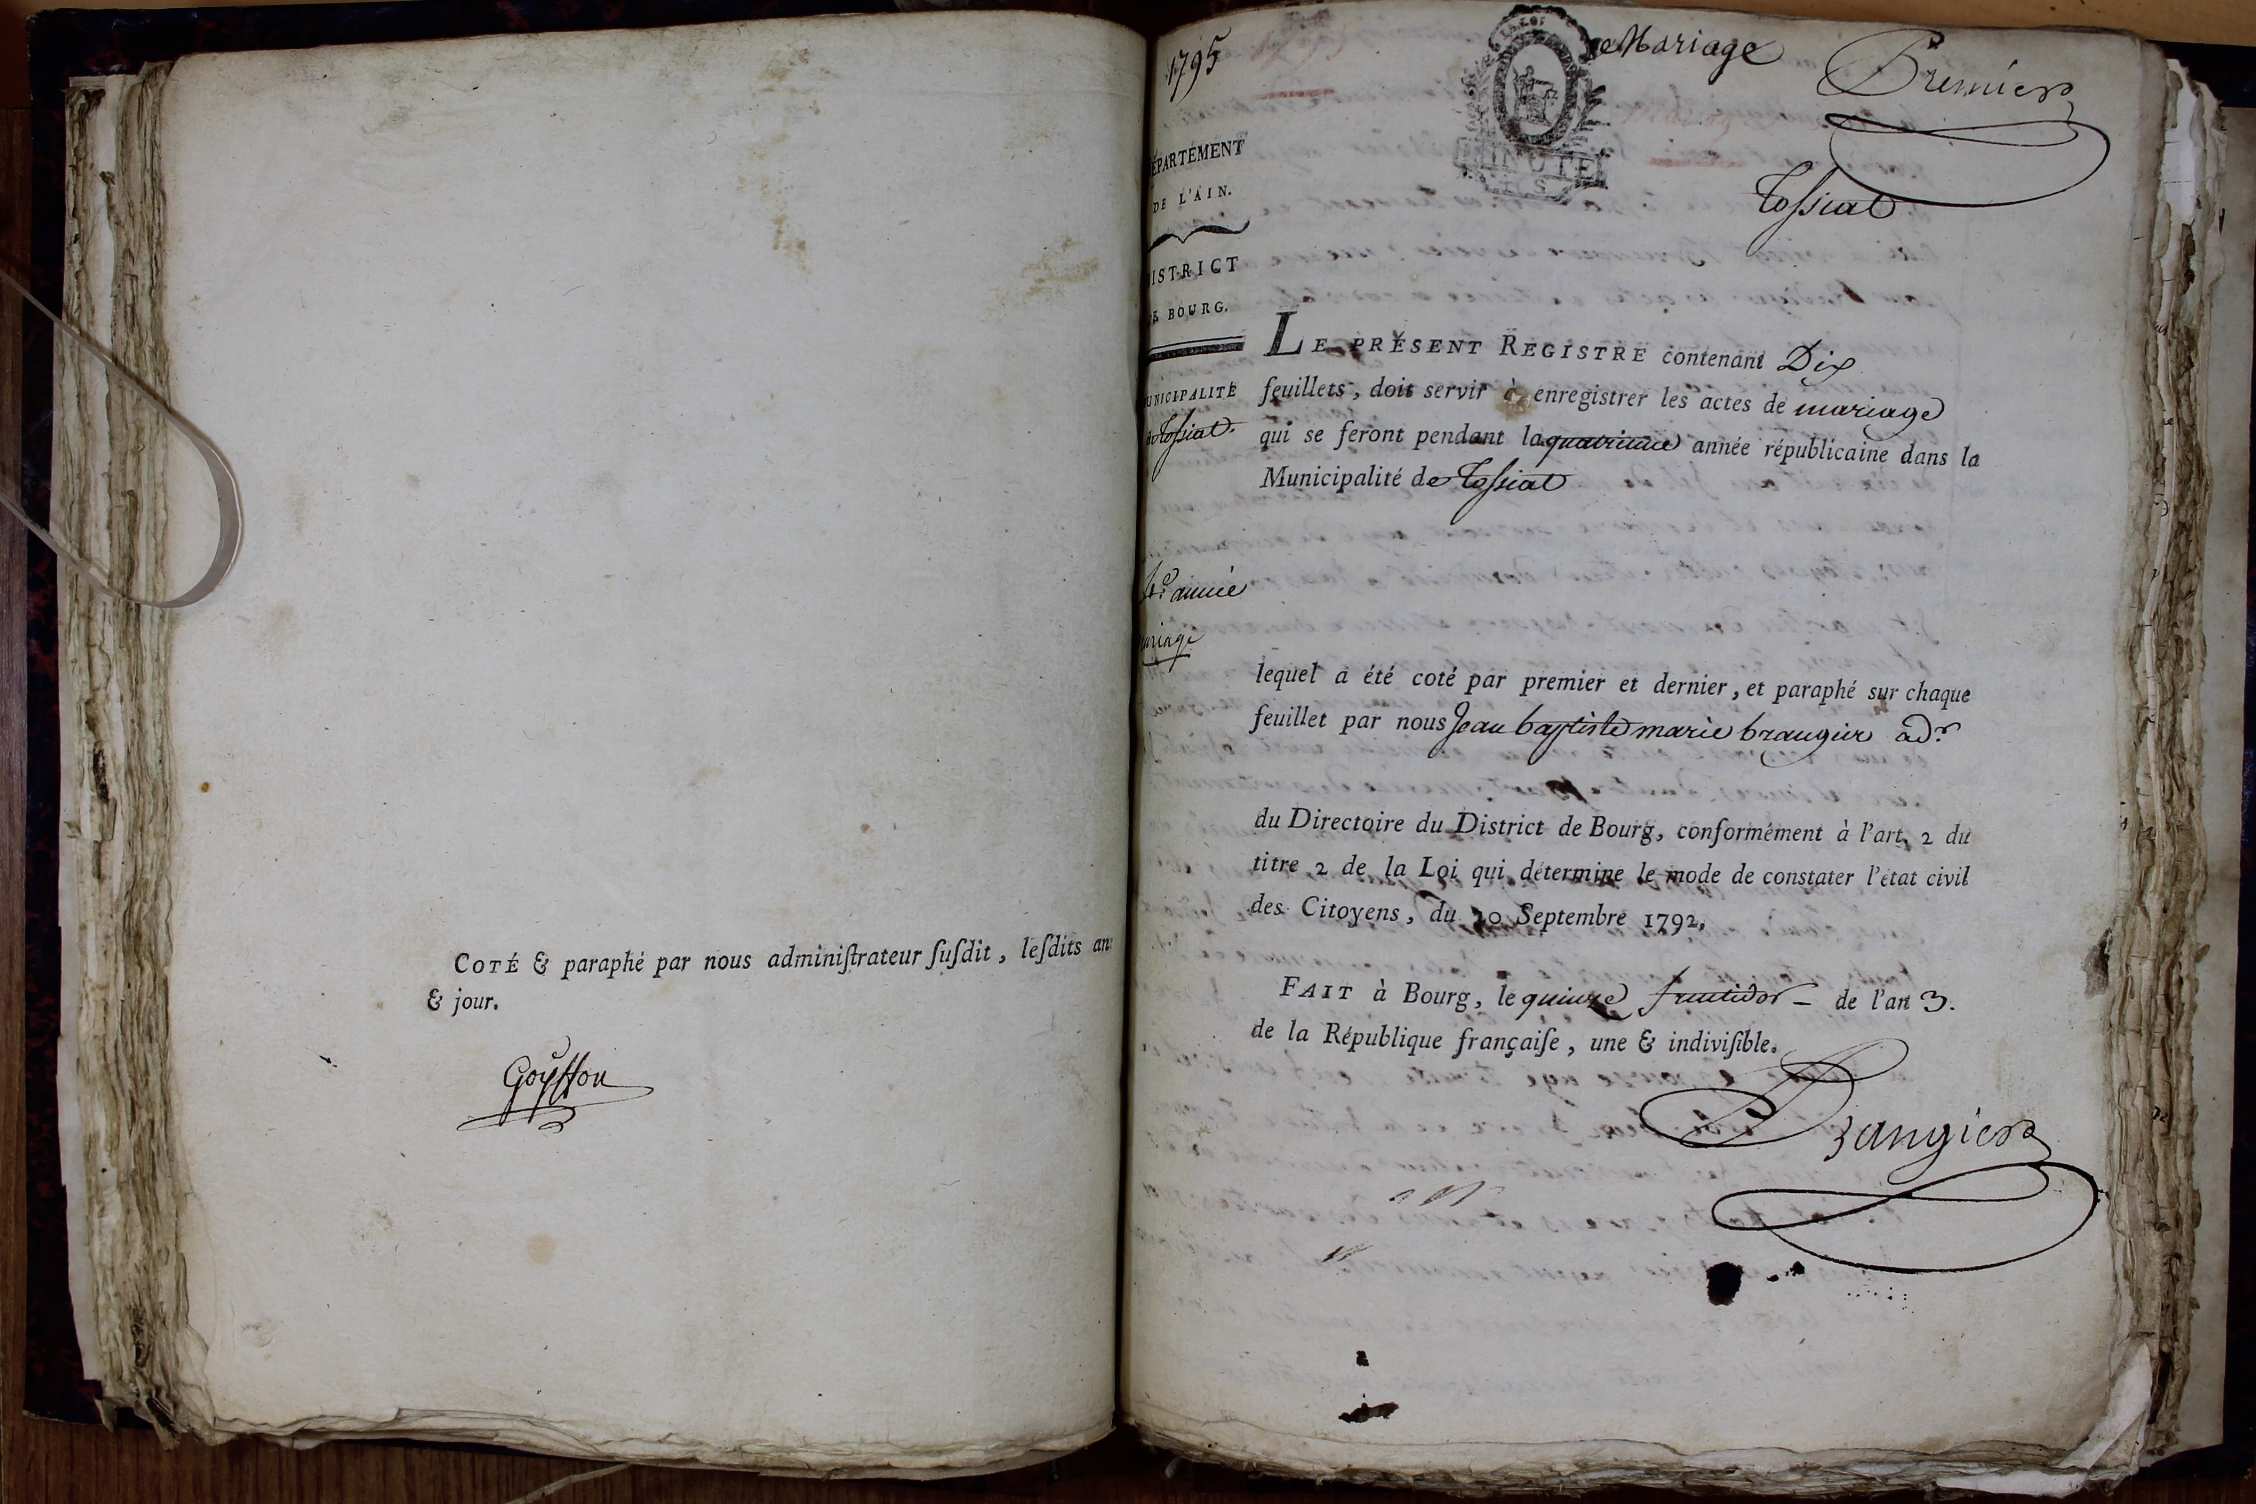 COTÉ & paraphé par nous adminiſtrateur ſuſdit, leſdits an
& jour.
Goyffon
1795
Mariage
Premier
Tossiat
MINUTE
ÉPARTEMENT
DE L'AIN.
ISTRICT
E BOURG.
UNICIPALITÉ
de Tossiat.
4e. année
ariage
LE PRÉSENT REGISTRE contenant Dix
feuillets, doit servir à enregistrer les actes de mariage
qui se feront pendant la quatrieme année républicaine dans la
Municipalité de Tossiat
lequel a été coté par premier et dernier, et paraphé sur chaque
feuillet par nous Jean baptiste marie brangier adr
du Directoire du District de Bourg, conformément à l'art, 2 du
titre 2 de la Loi qui détermine le mode de constater l'état civil
des Citoyens, du 20 Septembre 1792,
FAIT à Bourg, le quinze fructidor - de l'an 3.
de la République françaiſe, une & indiviſible.
Brangier